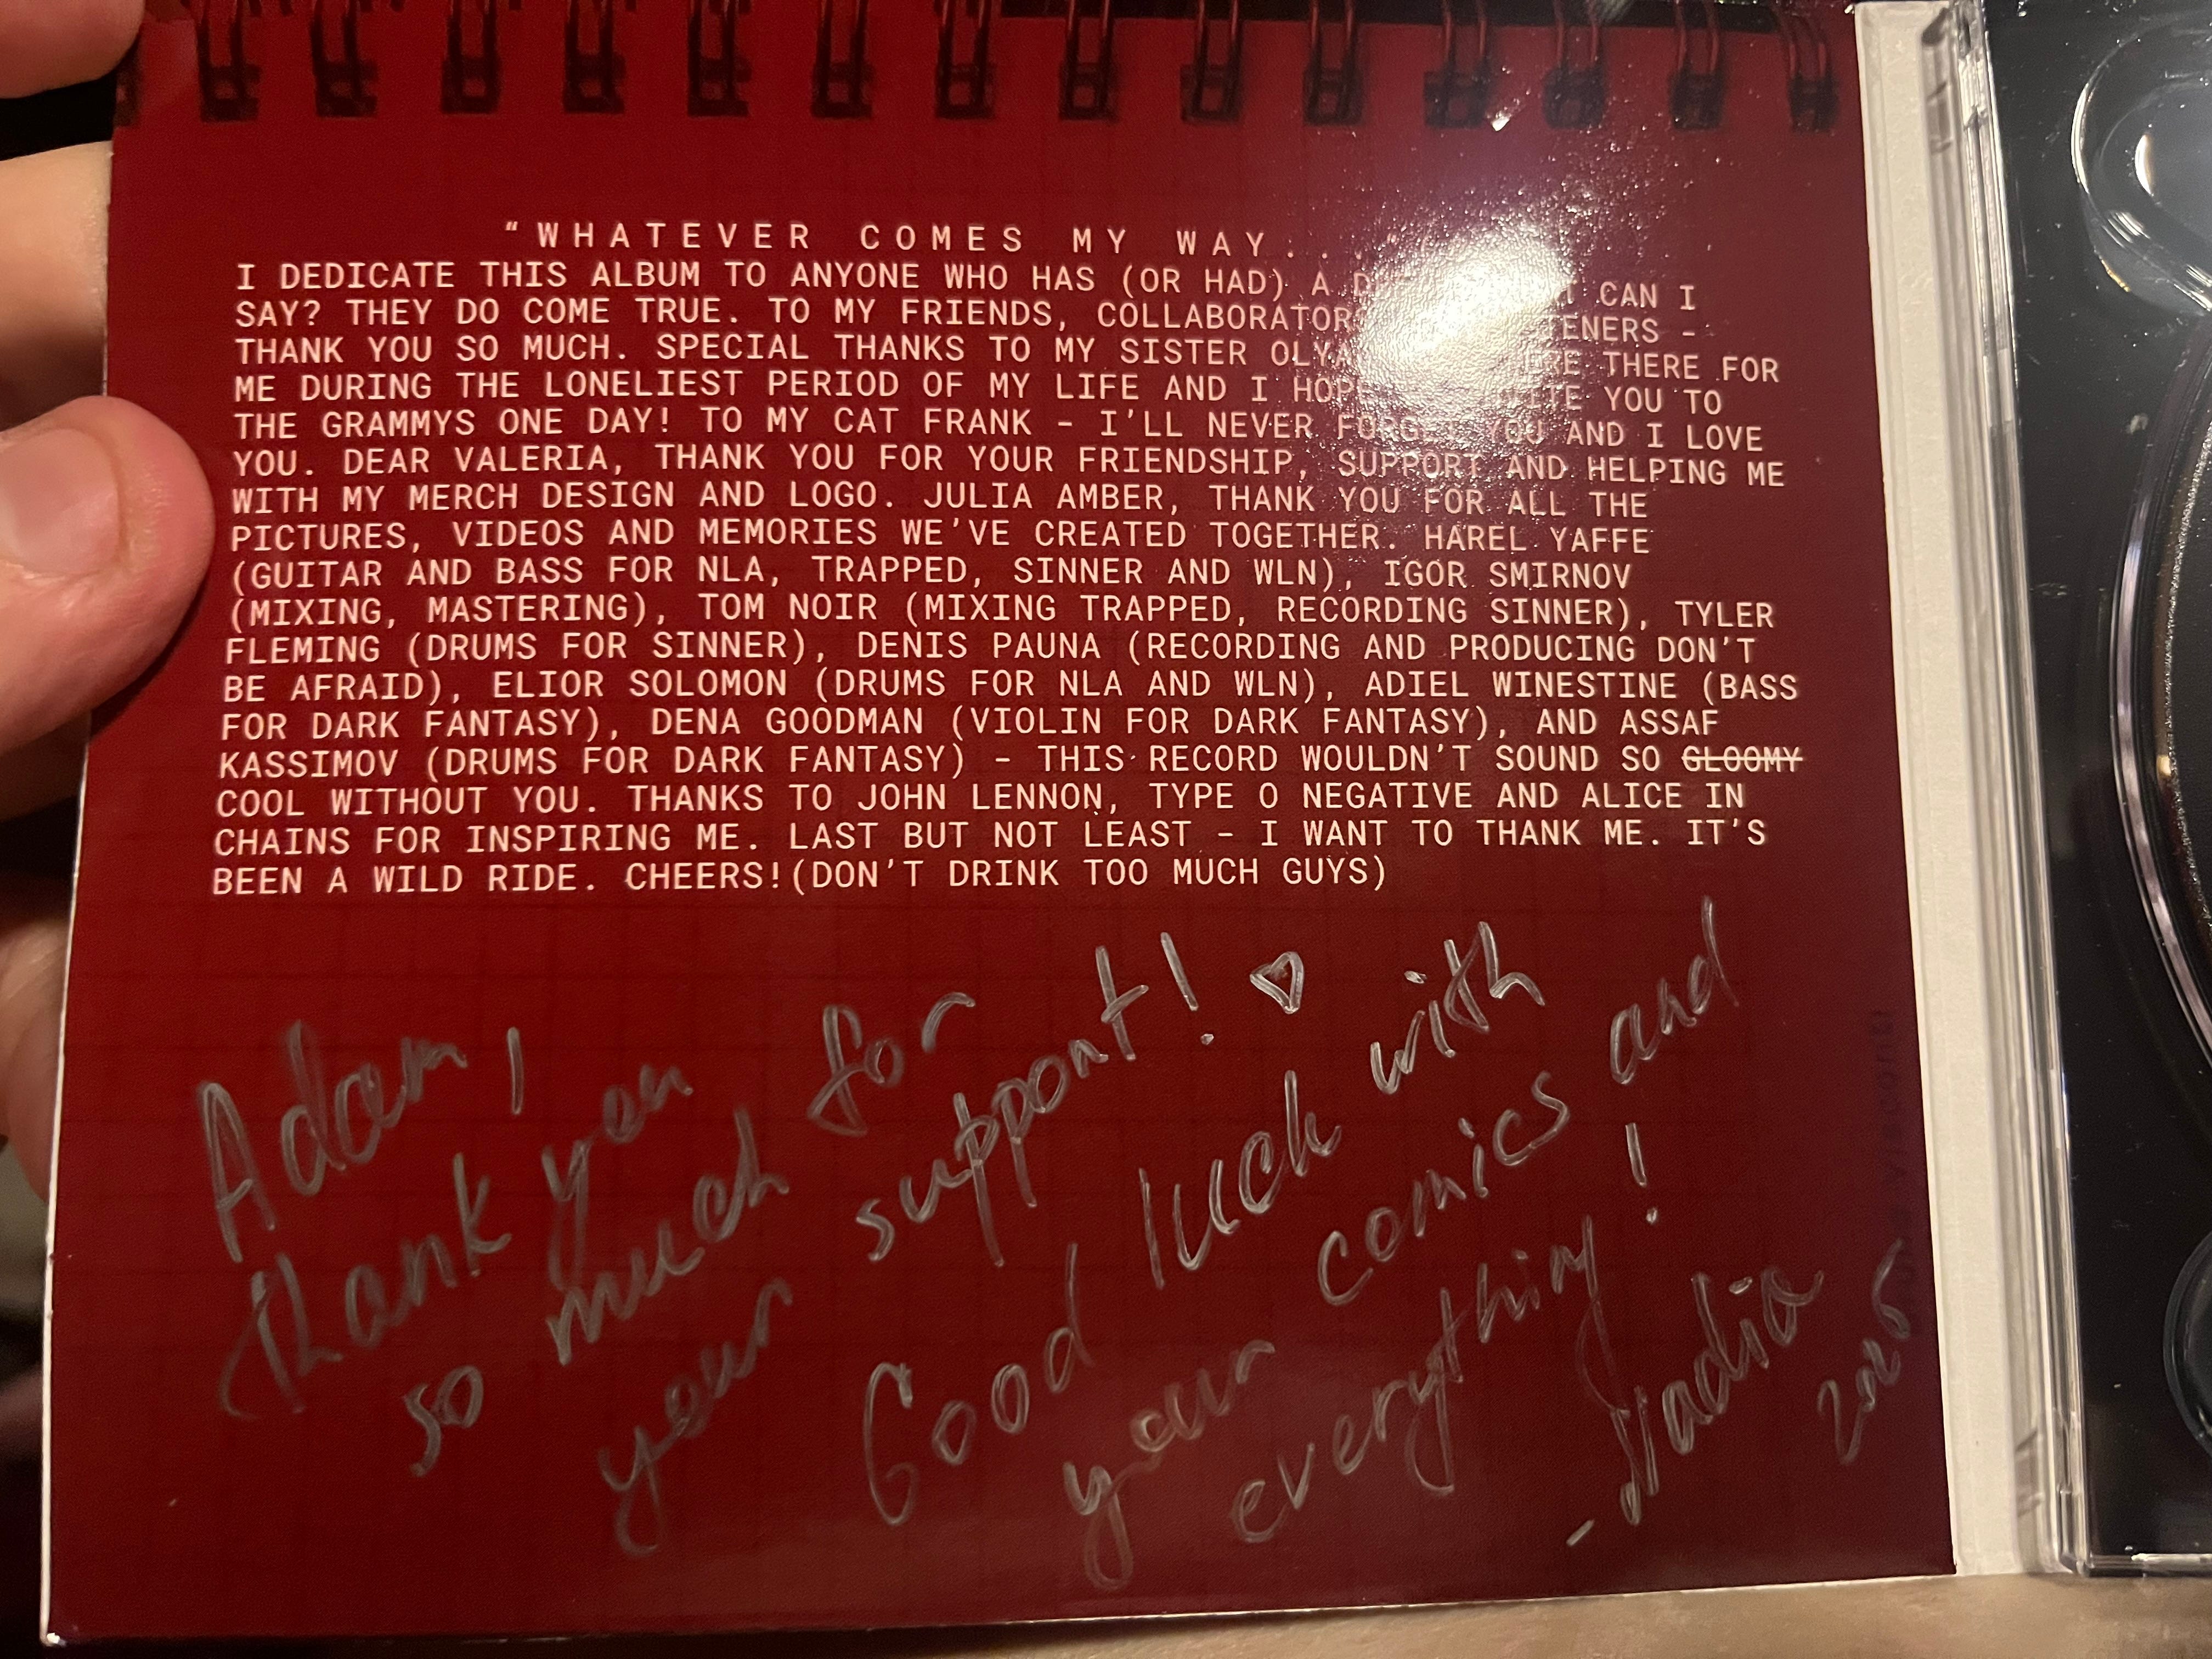 "WHATEVER COMES MY WAY...
I DEDICATE THIS ALBUM TO ANYONE WHO HAS (OR HAD) A CAN I
SAY? THEY DO COME TRUE. TO MY FRIENDS, COLLABORATORS
THANK YOU SO MUCH. SPECIAL THANKS TO MY SISTER OLYA THERE FOR
ME DURING THE LONELIEST PERIOD OF MY LIFE AND I HOPE YOU TO
THE GRAMMYS ONE DAY! TO MY CAT FRANK - I'LL NEVER FORGET YOU AND I LOVE
YOU. DEAR VALERIA, THANK YOU FOR YOUR FRIENDSHIP, SUPPORT AND HELPING ME
WITH MY MERCH DESIGN AND LOGO. JULIA AMBER, THANK YOU FOR ALL THE
PICTURES, VIDEOS AND MEMORIES WE'VE CREATED TOGETHER. HAREL YAFFE
(GUITAR AND BASS FOR NLA, TRAPPED, SINNER AND WLN), IGOR SMIRNOV
(MIXING, MASTERING), TOM NOIR (MIXING TRAPPED, RECORDING SINNER), TYLER
FLEMING (DRUMS FOR SINNER), DENIS PAUNA (RECORDING AND PRODUCING DON'T
BE AFRAID), ELIOR SOLOMON (DRUMS FOR NLA AND WLN), ADIEL WINESTINE (BASS
FOR DARK FANTASY), DENA GOODMAN (VIOLIN FOR DARK FANTASY), AND ASSAF
KASSIMOV (DRUMS FOR DARK FANTASY) - THIS RECORD WOULDN'T SOUND SO GLOOMY
COOL WITHOUT YOU. THANKS TO JOHN LENNON, TYPE O NEGATIVE AND ALICE IN
CHAINS FOR INSPIRING ME. LAST BUT NOT LEAST - I WANT TO THANK ME. IT'S
BEEN A WILD RIDE. CHEERS!(DON'T DRINK TOO MUCH GUYS)
Adam,
thank you
so much for
your support! ♡
Good luck with
your comics and
everything!
- Nadia